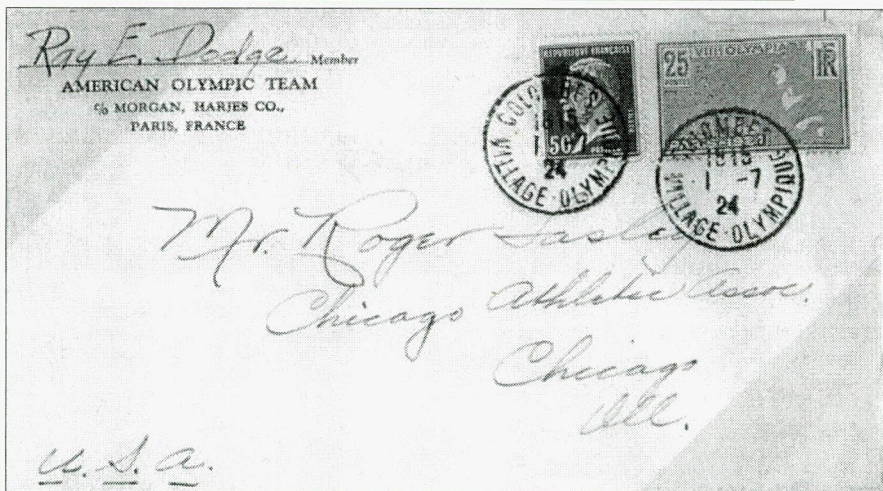 Ray E. Dodge Member
AMERICAN OLYMPIC TEAM
c/o MORGAN, HARJES CO.,
PARIS, FRANCE
REPUBLIQUE FRANCAISE
50
25
VIIIe OLYMPIADE
RF
COLOMBES
1815
1
24
VILLAGE-OLYMPIQUE
COLOMBES
1815
1 -7
24
VILLAGE-OLYMPIQUE
Mr. Roger
Chicago Athletic Assoc.
Chicago
Ill.
U.S.A.